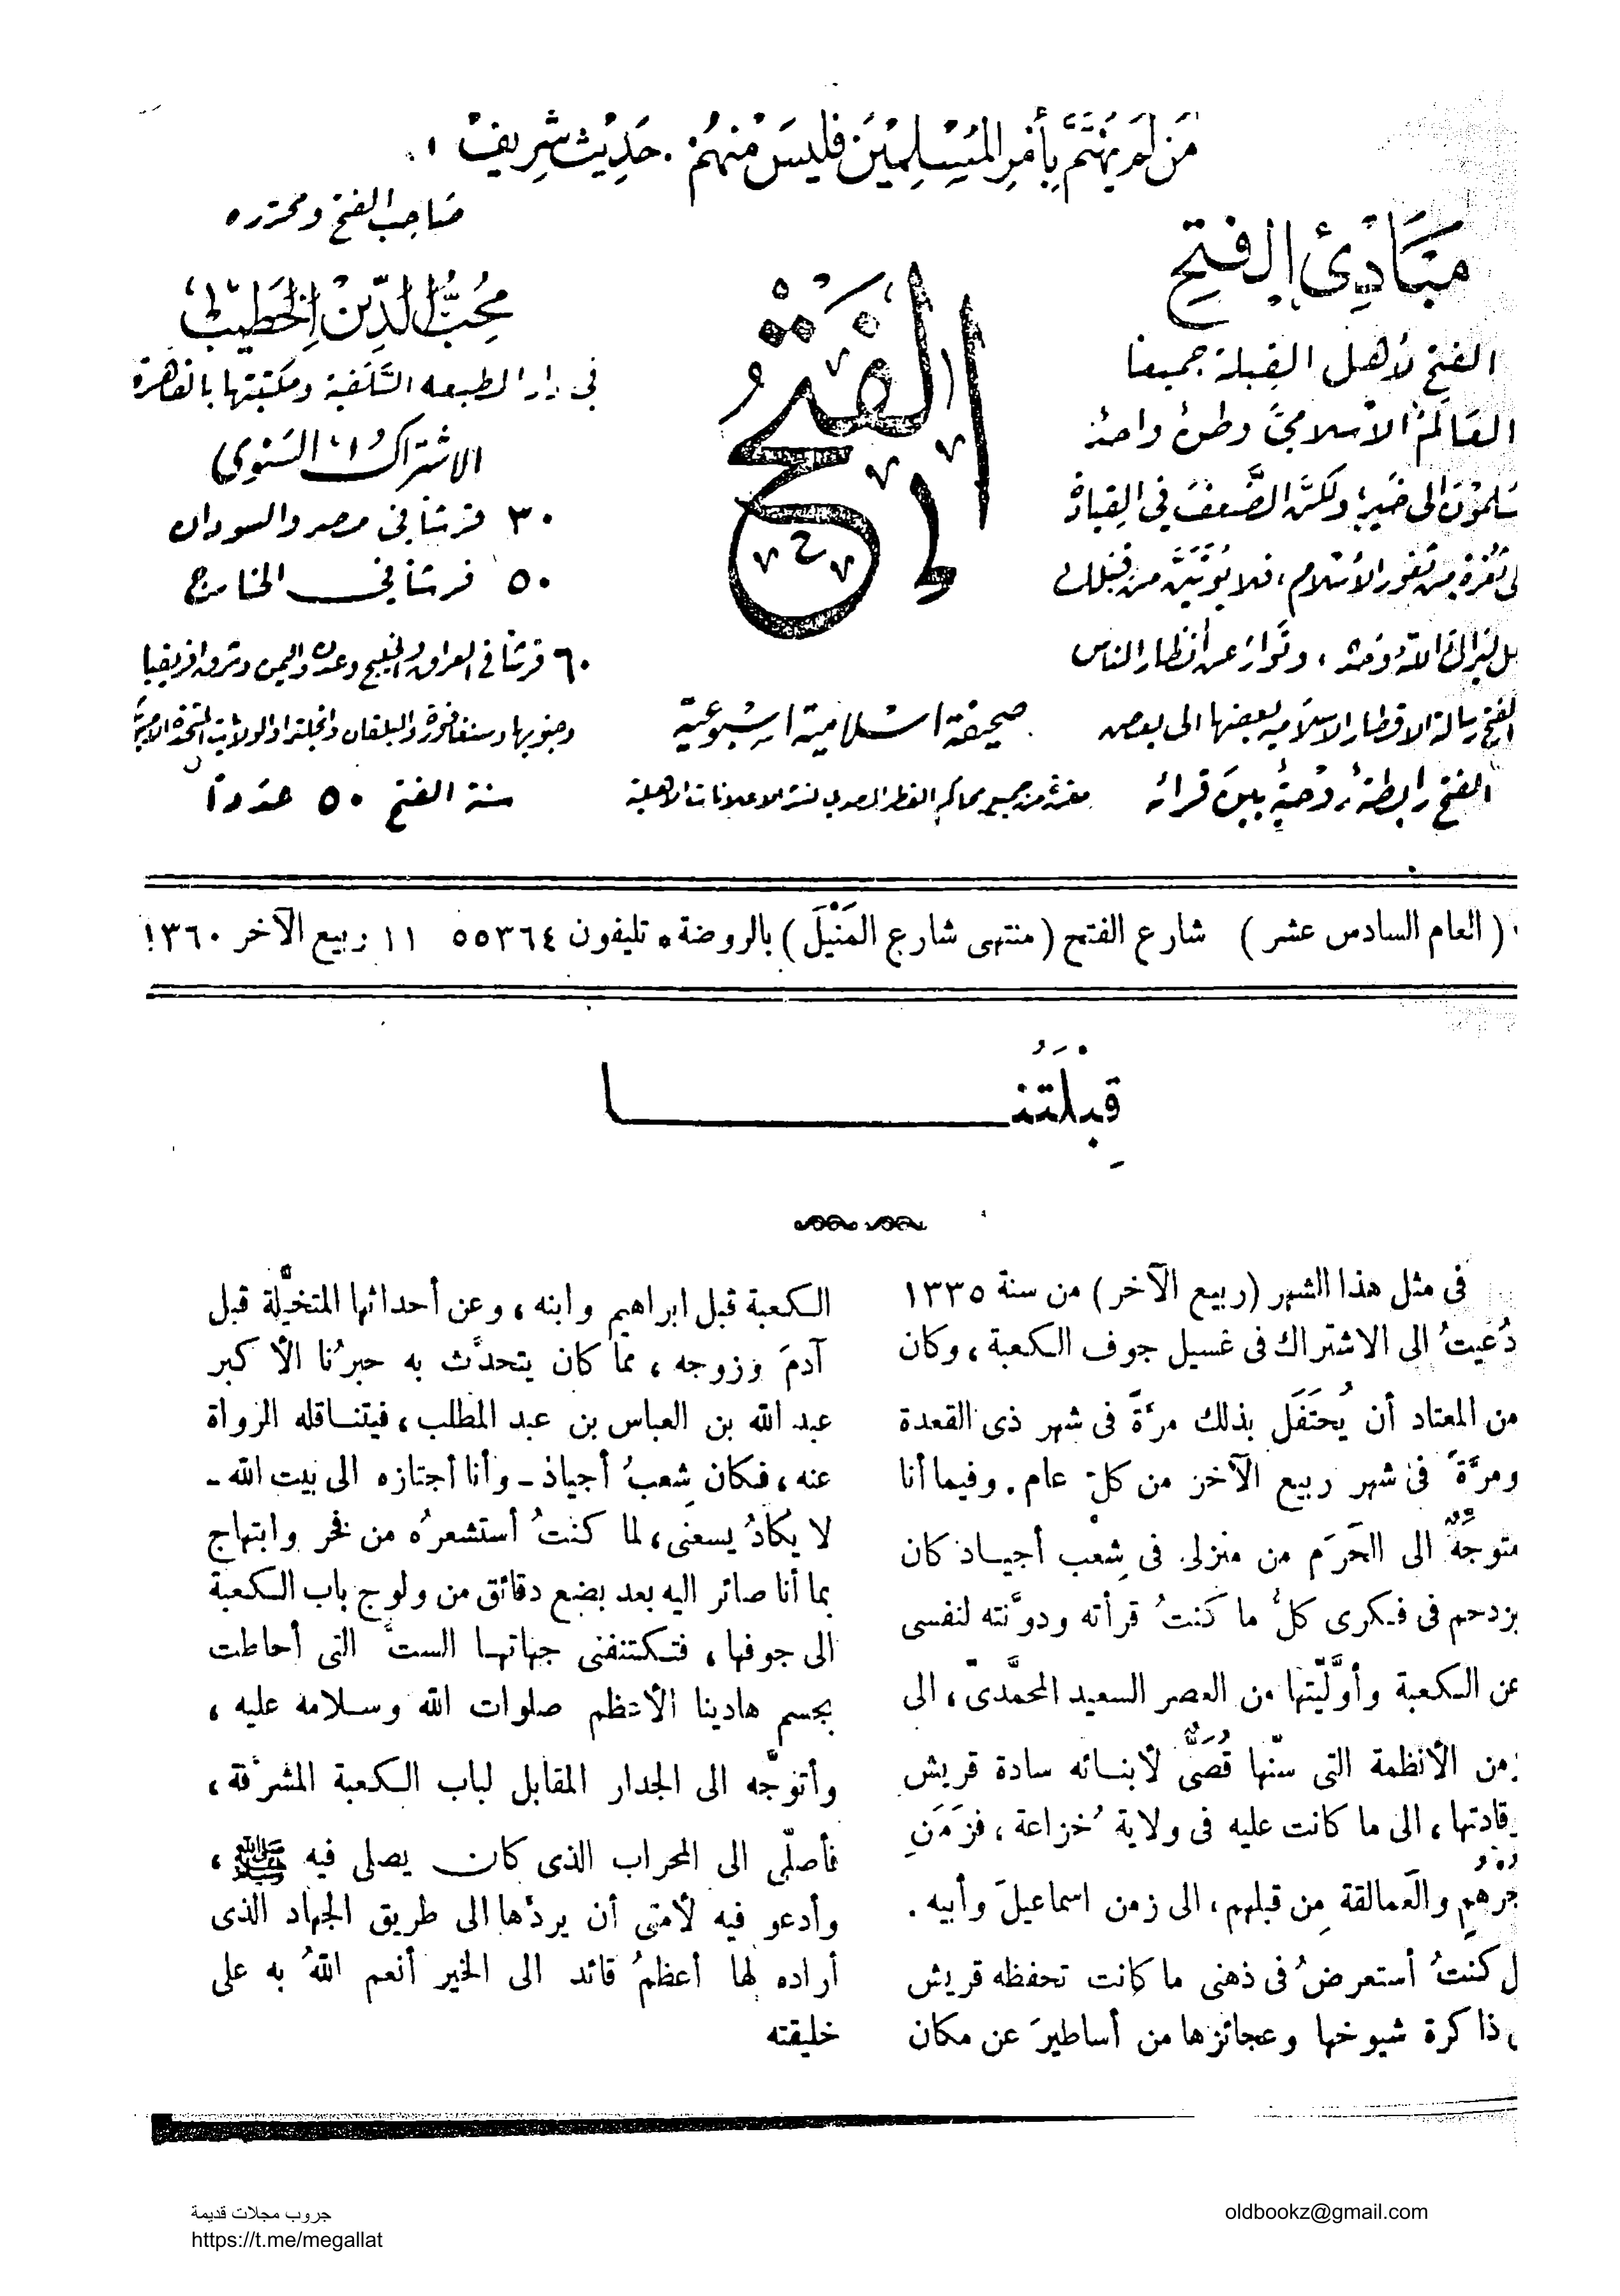 مَن لم يَهتمَّ بأمرِ المُسلِمينَ فليسَ منهُم. حَدِيث شَرِيف
مَبَادِئ الفتح
الفتح لأهل القبلة جميعا
العَالم الاسلاميّ وطن واحد
إلى خَير، ولكنَّ الضَّعف في القِيادة
ثغرة من ثغور الاسلام، فلا يُؤتَيَنَّ من قبلك
الله ، وتوار عن أنظار الناس
الفتح رسالة الاقطار الاسلامية بعضها الى بعض
الفتح رابطة رُوحيّة بينَ قرائه
الفَتْحُ
صحيفة اسلامية اسبوعية
صَاحِبُ الفتح ومحرّره
مُحِبُّ الدِّينْ الخَطِيب
في دار المطبعة السَّلفية ومكتبتها بالقاهرة
الاشتراك السَّنوى
٣٠ قرشاً في مصر والسودان
٥٠ قرشاً في الخارج
٦٠ قرشاً في العراق والخليج وعدن واليمن وشرق افريقيا
وجنوبها وسنغافورة والبلقان وانجلترا والولايات المتحدة الامريكية
سنة الفتح ٥٠ عدَداً
( العام السادس عشر ) شارع الفتح ( منتهى شارع المَنْيَل ) بالروضة • تليفون ٥٥٣٦٤ ١١ ربيع الآخر ١٣٦٠
قِبْلَتُنَــا
فى مثل هذا الشهر (ربيع الآخر) من سنة ١٣٣٥
دُعيتُ الى الاشتراك فى غسيل جوف الكعبة، وكان
من المعتاد أن يُحتَفَل بذلك مرّةً فى شهر ذى القعدة
ومرّةً فى شهر ربيع الآخر من كلّ عام. وفيما أنا
متوجّهٌ الى الحَرَم من منزلى فى شِعْب أجياد كان
يزدحم فى فكرى كلُّ ما كنتُ قرأته ودوّنته لنفسى
عن الكعبة وأوَّليّتها من العصر السعيد المحمَّدىّ، الى
زمن الأنظمة التى سنّها قُصَىٌّ لأبنائه سادة قريش
وقادتها، الى ما كانت عليه فى ولاية خُزاعة، فزَمَنِ
جُرْهُمٍ والعمالقة مِن قبلهم، الى زمن اسماعيلَ وأبيه.
بل كنتُ أستعرضُ فى ذهنى ما كانت تحفظه قريش
ذاكرة شيوخها وعجائزها من أساطيرَ عن مكان
الكعبة قبل ابراهيم وابنه، وعن أحداثها المتخيَّلة قبل
آدمَ وزوجه، مما كان يتحدّث به حبرُنا الأكبر
عبد الله بن العباس بن عبد المطلب، فيتناقله الرواة
عنه، فكان شِعبُ أجياد ـ وأنا أجتازه الى بيت الله ـ
لا يكادُ يسعنى، لما كنتُ أستشعرُه من فخر وابتهاج
بما أنا صائر اليه بعد بضع دقائق من ولوج باب الكعبة
الى جوفها، فتكتنفنى جهاتها الستّ التى أحاطت
بجسم هادينا الأعظم صلوات الله وسلامه عليه،
وأتوجّه الى الجدار المقابل لباب الكعبة المشرّفة،
فأصلّى الى المحراب الذى كان يصلى فيه ﷺ،
وأدعو فيه لأمتى أن يردّها الى طريق الجهاد الذى
أراده لها أعظمُ قائد الى الخير أنعم اللهُ به على
خليقته
جروب مجلات قديمة
https://t.me/megallat
oldbookz@gmail.com